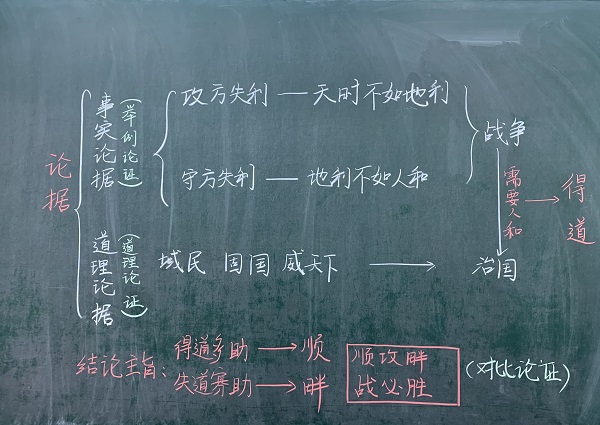 论据
事实论据
(举例论证)
攻方失利——天时不如地利
守方失利——地利不如人和
战争
需要人和
得道
道理论据
(道理论证)
域民 固国 威天下
治国
结论主旨:
得道多助 → 顺
失道寡助 → 畔
顺攻畔
战必胜
(对比论证)